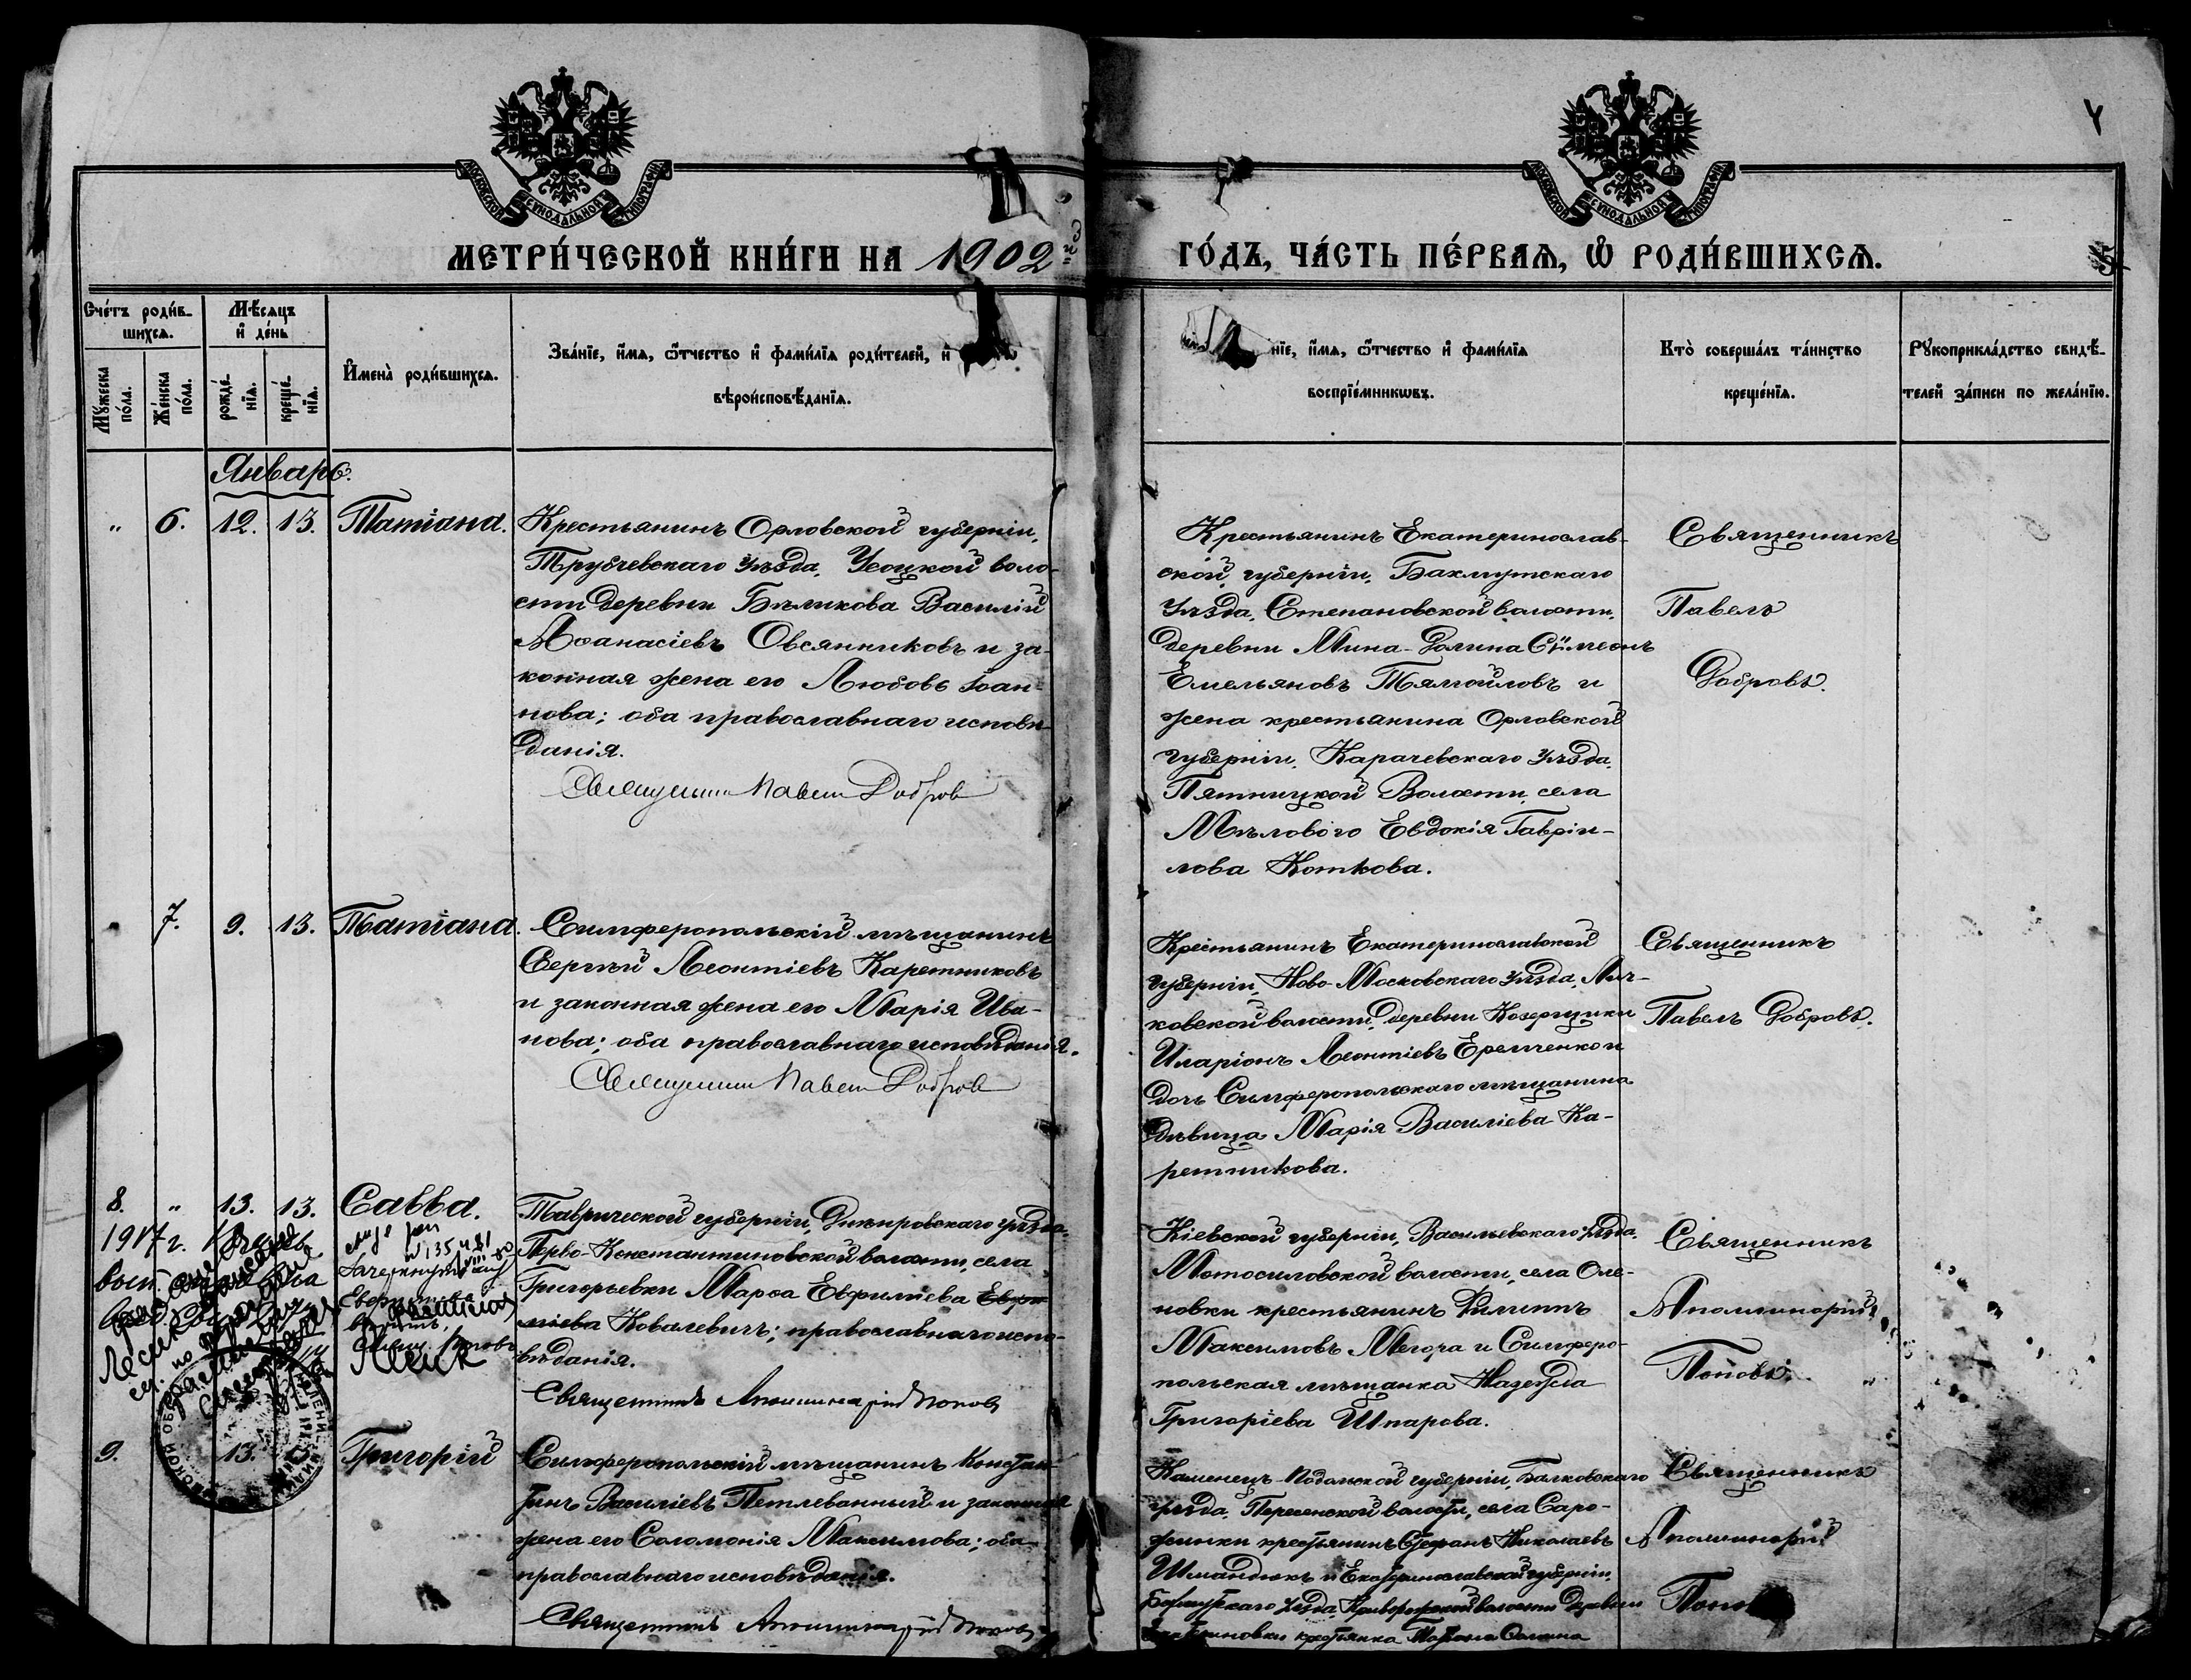 4
МОСКОВСКОЙ СѴНОДАЛЬНОЙ ТИПОГРАФІИ
МОСКОВСКОЙ СѴНОДАЛЬНОЙ ТИПОГРАФІИ
МЕТРИ́ЧЕСКОЙ КНИ́ГИ НА 1902й
ГО́ДЪ, ЧА́СТЬ ПЕ́РВАѦ, Ѿ РОДИ́ВШИХСѦ.
5
Счётъ роди́в-
шихсѧ.
Мѣ́сѧцъ
и҆ де́нь
Мꙋжеска
по́ла.
Же́нска
по́ла.
рожде́-
нїѧ.
креще́-
нїѧ.
И҆мена̀ роди́вшихсѧ.
Зва́нїе, и҆́мѧ, ѻ҆́тчество и҆ фами́лїѧ роди́телей, и҆
вѣроисповѣ́данїѧ.
нїе, и҆́мѧ, ѻ҆́тчество и҆ фами́лїѧ
воспрїе́мникѡвъ.
Кто̀ соверша́лъ та́инство
креще́нїѧ.
Рꙋкоприкла́дство свидѣ́-
телей за́писи по жела́нїю.
Январь.
" 6. 12. 13. Татіана.
Крестьянинъ Орловской губерніи,
Трубчевскаго уѣзда, Усоцкой воло-
сти деревни Бѣликова Василій
Аѳанасіевъ Овсянниковъ и за-
конная жена его Любовь Іоан-
нова; оба православнаго исповѣ-
данія.
Священникъ Павелъ Добровъ
Крестьянинъ Екатеринослав-
ской губерніи, Бахмутскаго
уѣзда, Степановской волости,
деревни Мина-Долина Сѷмеонъ
Емельяновъ Тямойловъ и
жена крестьянина Орловской
губерніи, Карачевскаго уѣзда,
Пятницкой Волости, села
Мѣлового Евдокія Гаврі-
лова Коткова.
Священникъ
Павелъ
Добровъ.
7. 9. 13. Татіана.
Симферопольскій мѣщанинъ
Сергѣй Леонтіевъ Каретниковъ
и законная жена его Марія Ива-
нова; оба православнаго исповѣданія.
Священникъ Павелъ Добровъ
Крестьянинъ Екатеринославской
губерніи, Ново-Московскаго уѣзда, Лич-
ковской волости, деревни Козерщики
Иларіонъ Леонтіевъ Еремченко и
дочь Симферопольскаго мѣщанина
дѣвица Марія Василіева Ка-
ретникова.
Священникъ
Павелъ Добровъ.
8. " 13. 13. Савва.
1917 г.
Таврической губерніи, Днѣпровскаго уѣзда,
Перво-Константиновской волости, села
Григорьевки Марѳа Евфиміева Евфи-
міева Ковалевичъ; православнаго испо-
вѣданія.
Священникъ Аполлинарій Поповъ
Кіевской губерніи, Васильевскаго уѣзда,
Мотосиловской волости, села Оле-
новки крестьянинъ Филиппъ
Максимовъ Мегора и Симферо-
польская мѣщанка Надежда
Григоріева Шпарова.
Священникъ
Аполлинарій
Поповъ.
9. 13. Григорій
Симферопольскій мѣщанинъ Констан-
тинъ Василіевъ Петлеванный и законная
жена его Соломонія Максимова; оба
православнаго исповѣданія.
Священникъ Аполлинарій Поповъ
Каменецъ-Подольской губерніи, Балковскаго
уѣзда, Пересенской волости, села Саро-
жинки крестьянинъ Стефанъ Николаевъ
Шмандюкъ и Екатеринославской губерніи,
Бахмутскаго уѣзда, волости деревни
крестьянка
Священникъ
Аполлинарій